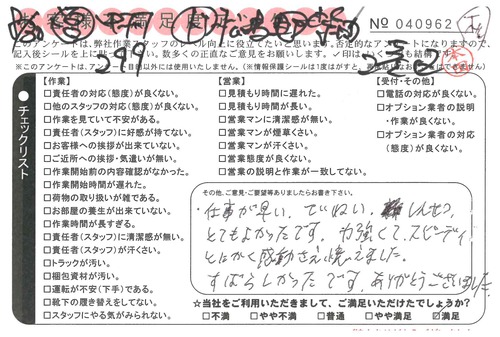 お客様 満足度
№ 040962
このアンケートは、弊社作業スタッフのレベル向上に役立てたいと思います。否定的なアンケートになりますので、
記入後シールを上に貼って
※このアンケートは、アンケート目的以外には使用いたしません。(※情報保護シールは1度はがすと、再度貼りなおしはできません)
チェックリスト
【作業】
□責任者の対応(態度)が良くない。
□他のスタッフの対応(態度)が良くない。
□作業を見ていて不安がある。
□責任者(スタッフ)に好感が持てない。
□お客様への挨拶が出来ていない。
□ご近所への挨拶・気遣いが無い。
□作業開始前の内容確認がなかった。
□作業開始時間が遅れた。
□荷物の取り扱いが雑である。
□お部屋の養生が出来ていない。
□作業時間が長すぎる。
□責任者(スタッフ)に清潔感が無い。
□責任者(スタッフ)が汗くさい。
□トラックが汚い。
□梱包資材が汚い。
□運転が不安(下手)である。
□靴下の履き替えをしてない。
□スタッフにやる気がみられない。
【営業】
□見積もり時間に遅れた。
□見積もり時間が長い。
□営業マンに清潔感が無い。
□営業マンが煙草くさい。
□営業マンが汗くさい。
□営業態度が良くない。
□営業の説明と作業が一致してない。
【受付・その他】
□電話の対応が良くない。
□オプション業者の説明
・作業が良くない。
□オプション業者の対応
(態度)が良くない。
その他、ご意見・ご要望等ありましたらお書き下さい。
・仕事が早い、ていねい、しんせつ、
とてもよかったです。力強くて、スピーディ
とにかく感動さえ覚えました。
すばらしかったです。ありがとうございました。
☆当社をご利用いただきまして、ご満足いただけたでしょうか?
□不満 □やや不満 □普通 □やや満足 ☑満足